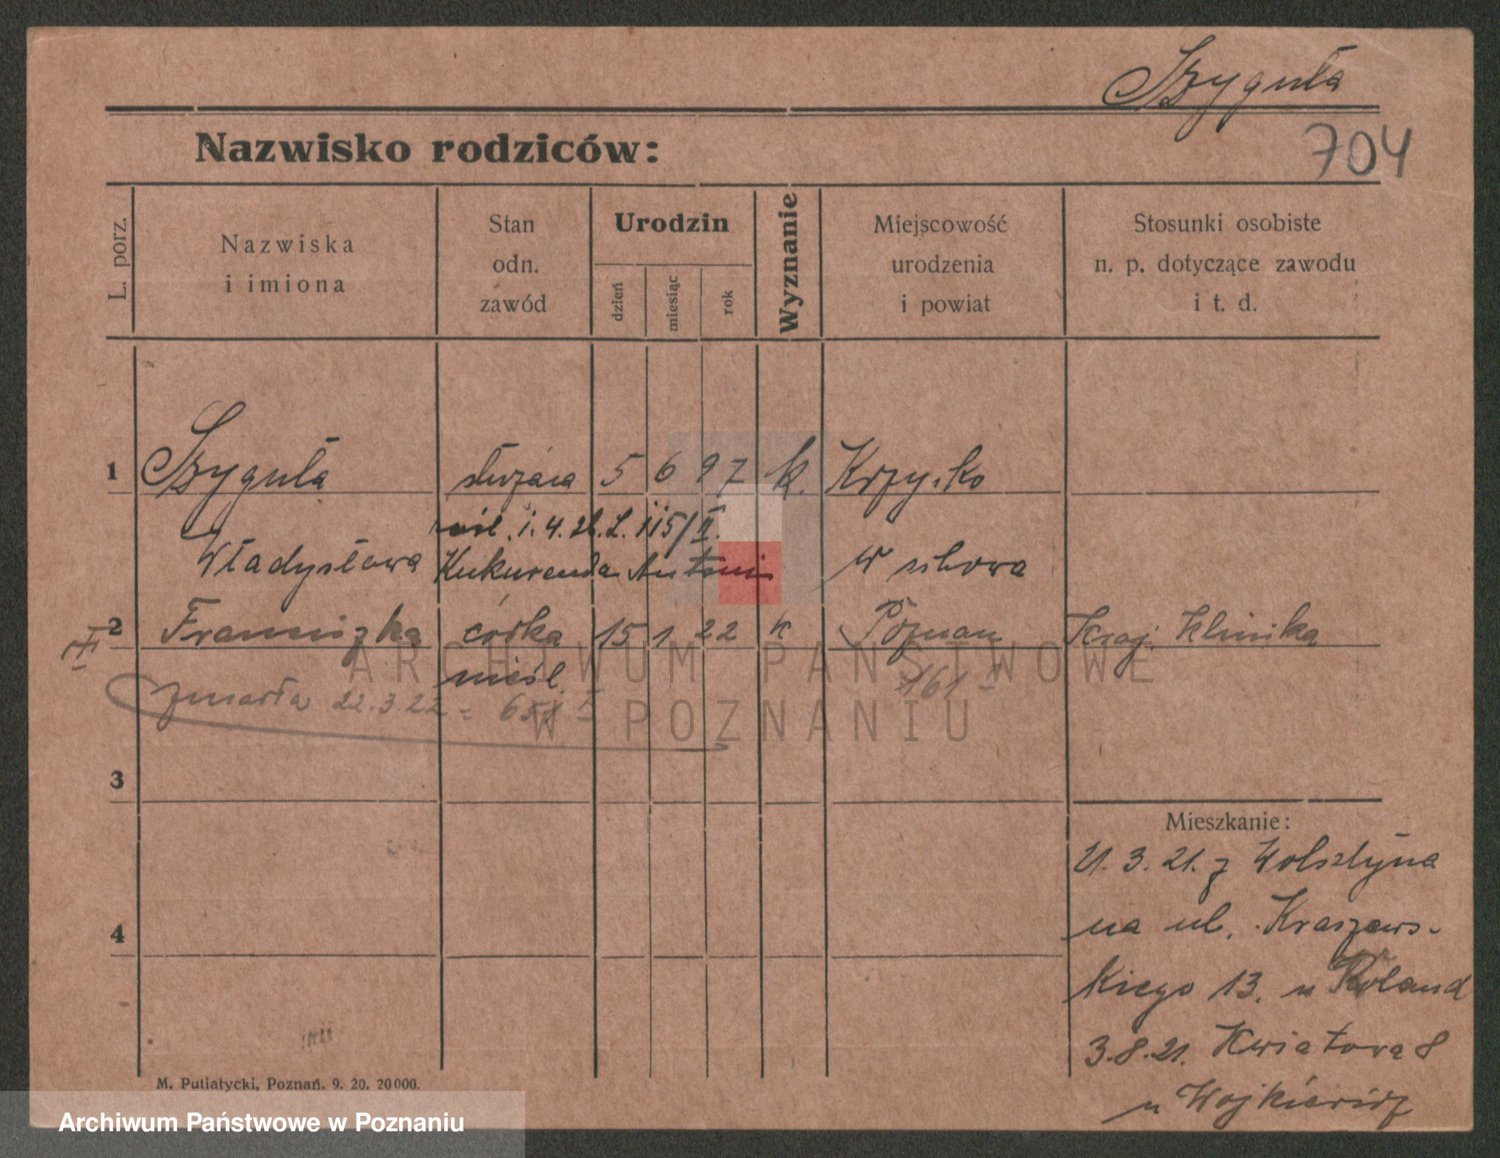 Szyguła
704
Nazwisko rodziców:
L. porz.
Nazwiska
i imiona
Stan
odn.
zawód
Urodzin
dzień
miesiąc
rok
Wyznanie
Miejscowość
urodzenia
i powiat
Stosunki osobiste
n. p. dotyczące zawodu
i t. d.
1 Szyguła służąca 5 6 97 k.
115/II.
Władysława Antoni
2 Franciszka córka 15 1 22 k Poznan Kraj. Klinika
nieśl. 161 I
zmarła 22.3.22 =
3
4
Mieszkanie:
21. 3. 21. z Wolsztyna
na ul. Kraszews-
kiego 13. u Roland
3.8.21. Kwiatowa 8
u
M. Putiatycki, Poznań. 9. 20. 20000.
ARCHIWUM PAŃSTWOWE
W POZNANIU
Archiwum Państwowe w Poznaniu